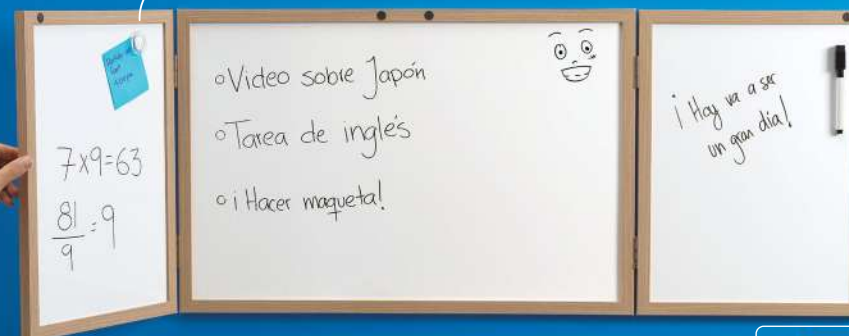 7x9=63
81
9
=9
○Video sobre Japón
○Tarea de inglés
○¡Hacer maqueta!
¡Hoy va a ser
un gran día!